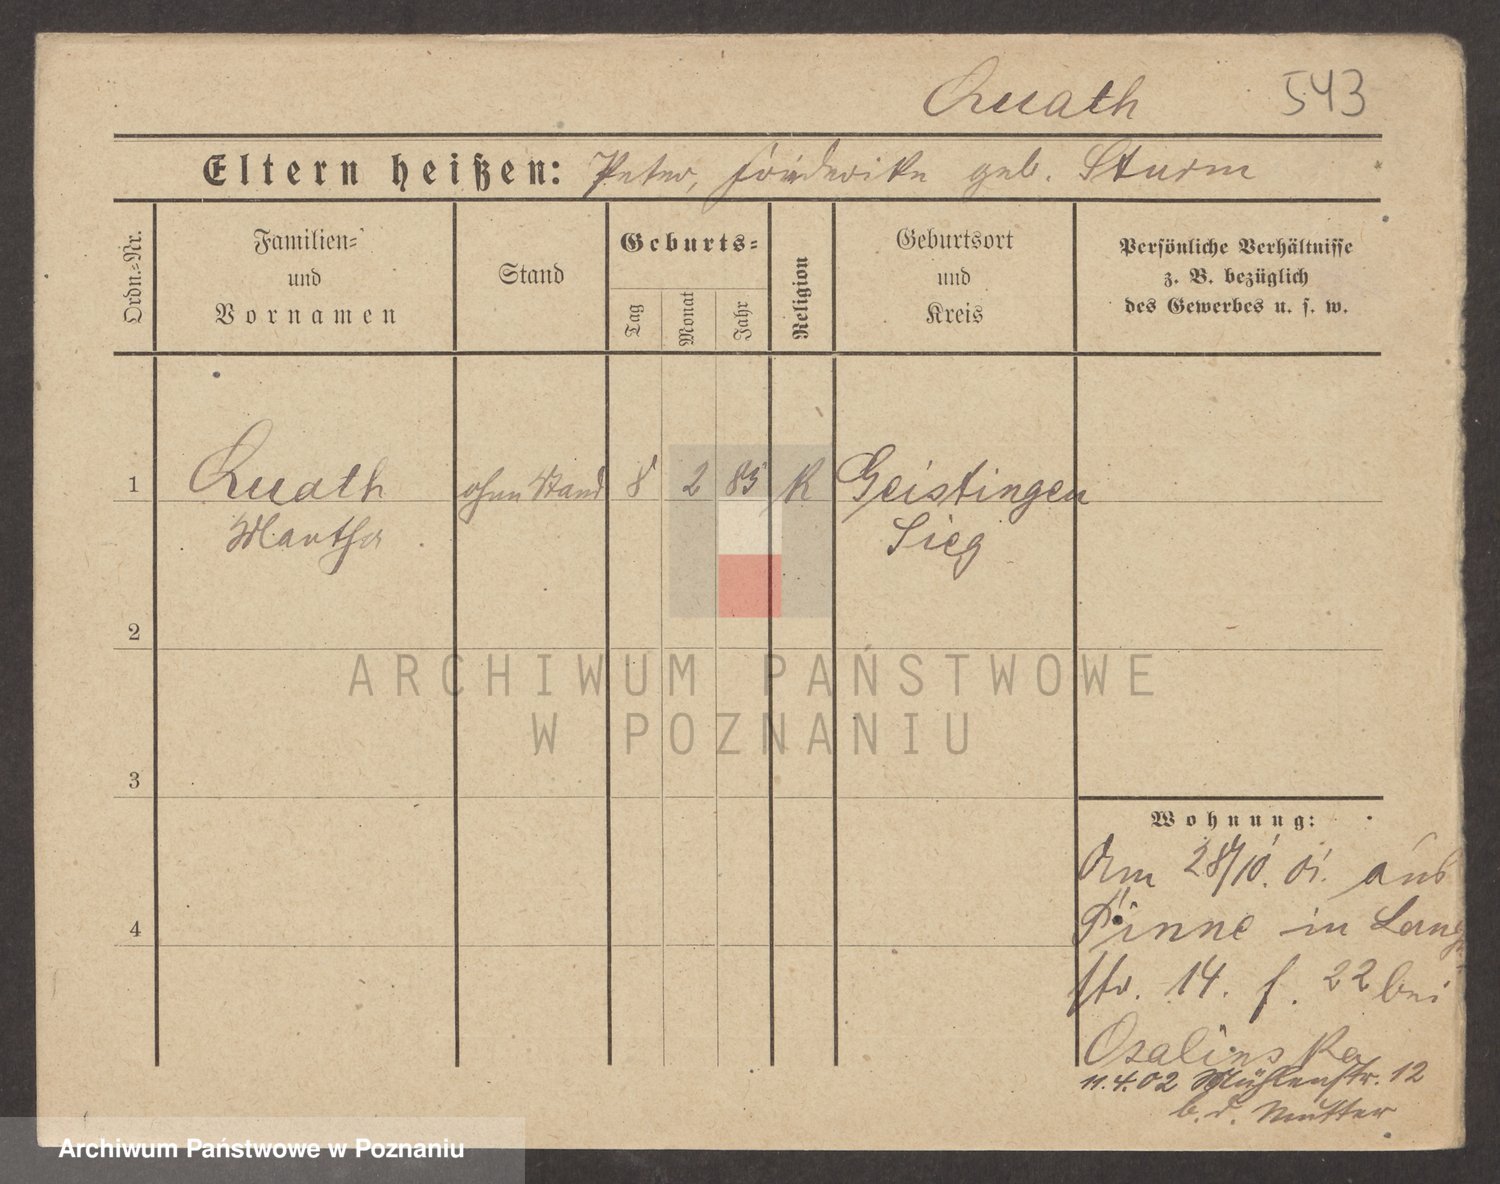 Quath 543
Eltern heißen: Peter, Friederike geb. Sturm
Ordn.-Nr.
Familien-
und
Vornamen
Stand
Geburts-
Tag
Monat
Jahr
Religion
Geburtsort
und
Kreis
Persönliche Verhältnisse
z. B. bezüglich
des Gewerbes u. s. w.
1 Quath ohne Stand 8 2 85 K Geistingen
Martha Sieg
2
ARCHIWUM PAŃSTWOWE
W POZNANIU
3
Wohnung:
Am 28/10. 01. aus
4 Pinne in Lang
str. 14. f. 22 bei
11.4.02 Mühlenstr. 12
b. d. Mutter
Archiwum Państwowe w Poznaniu